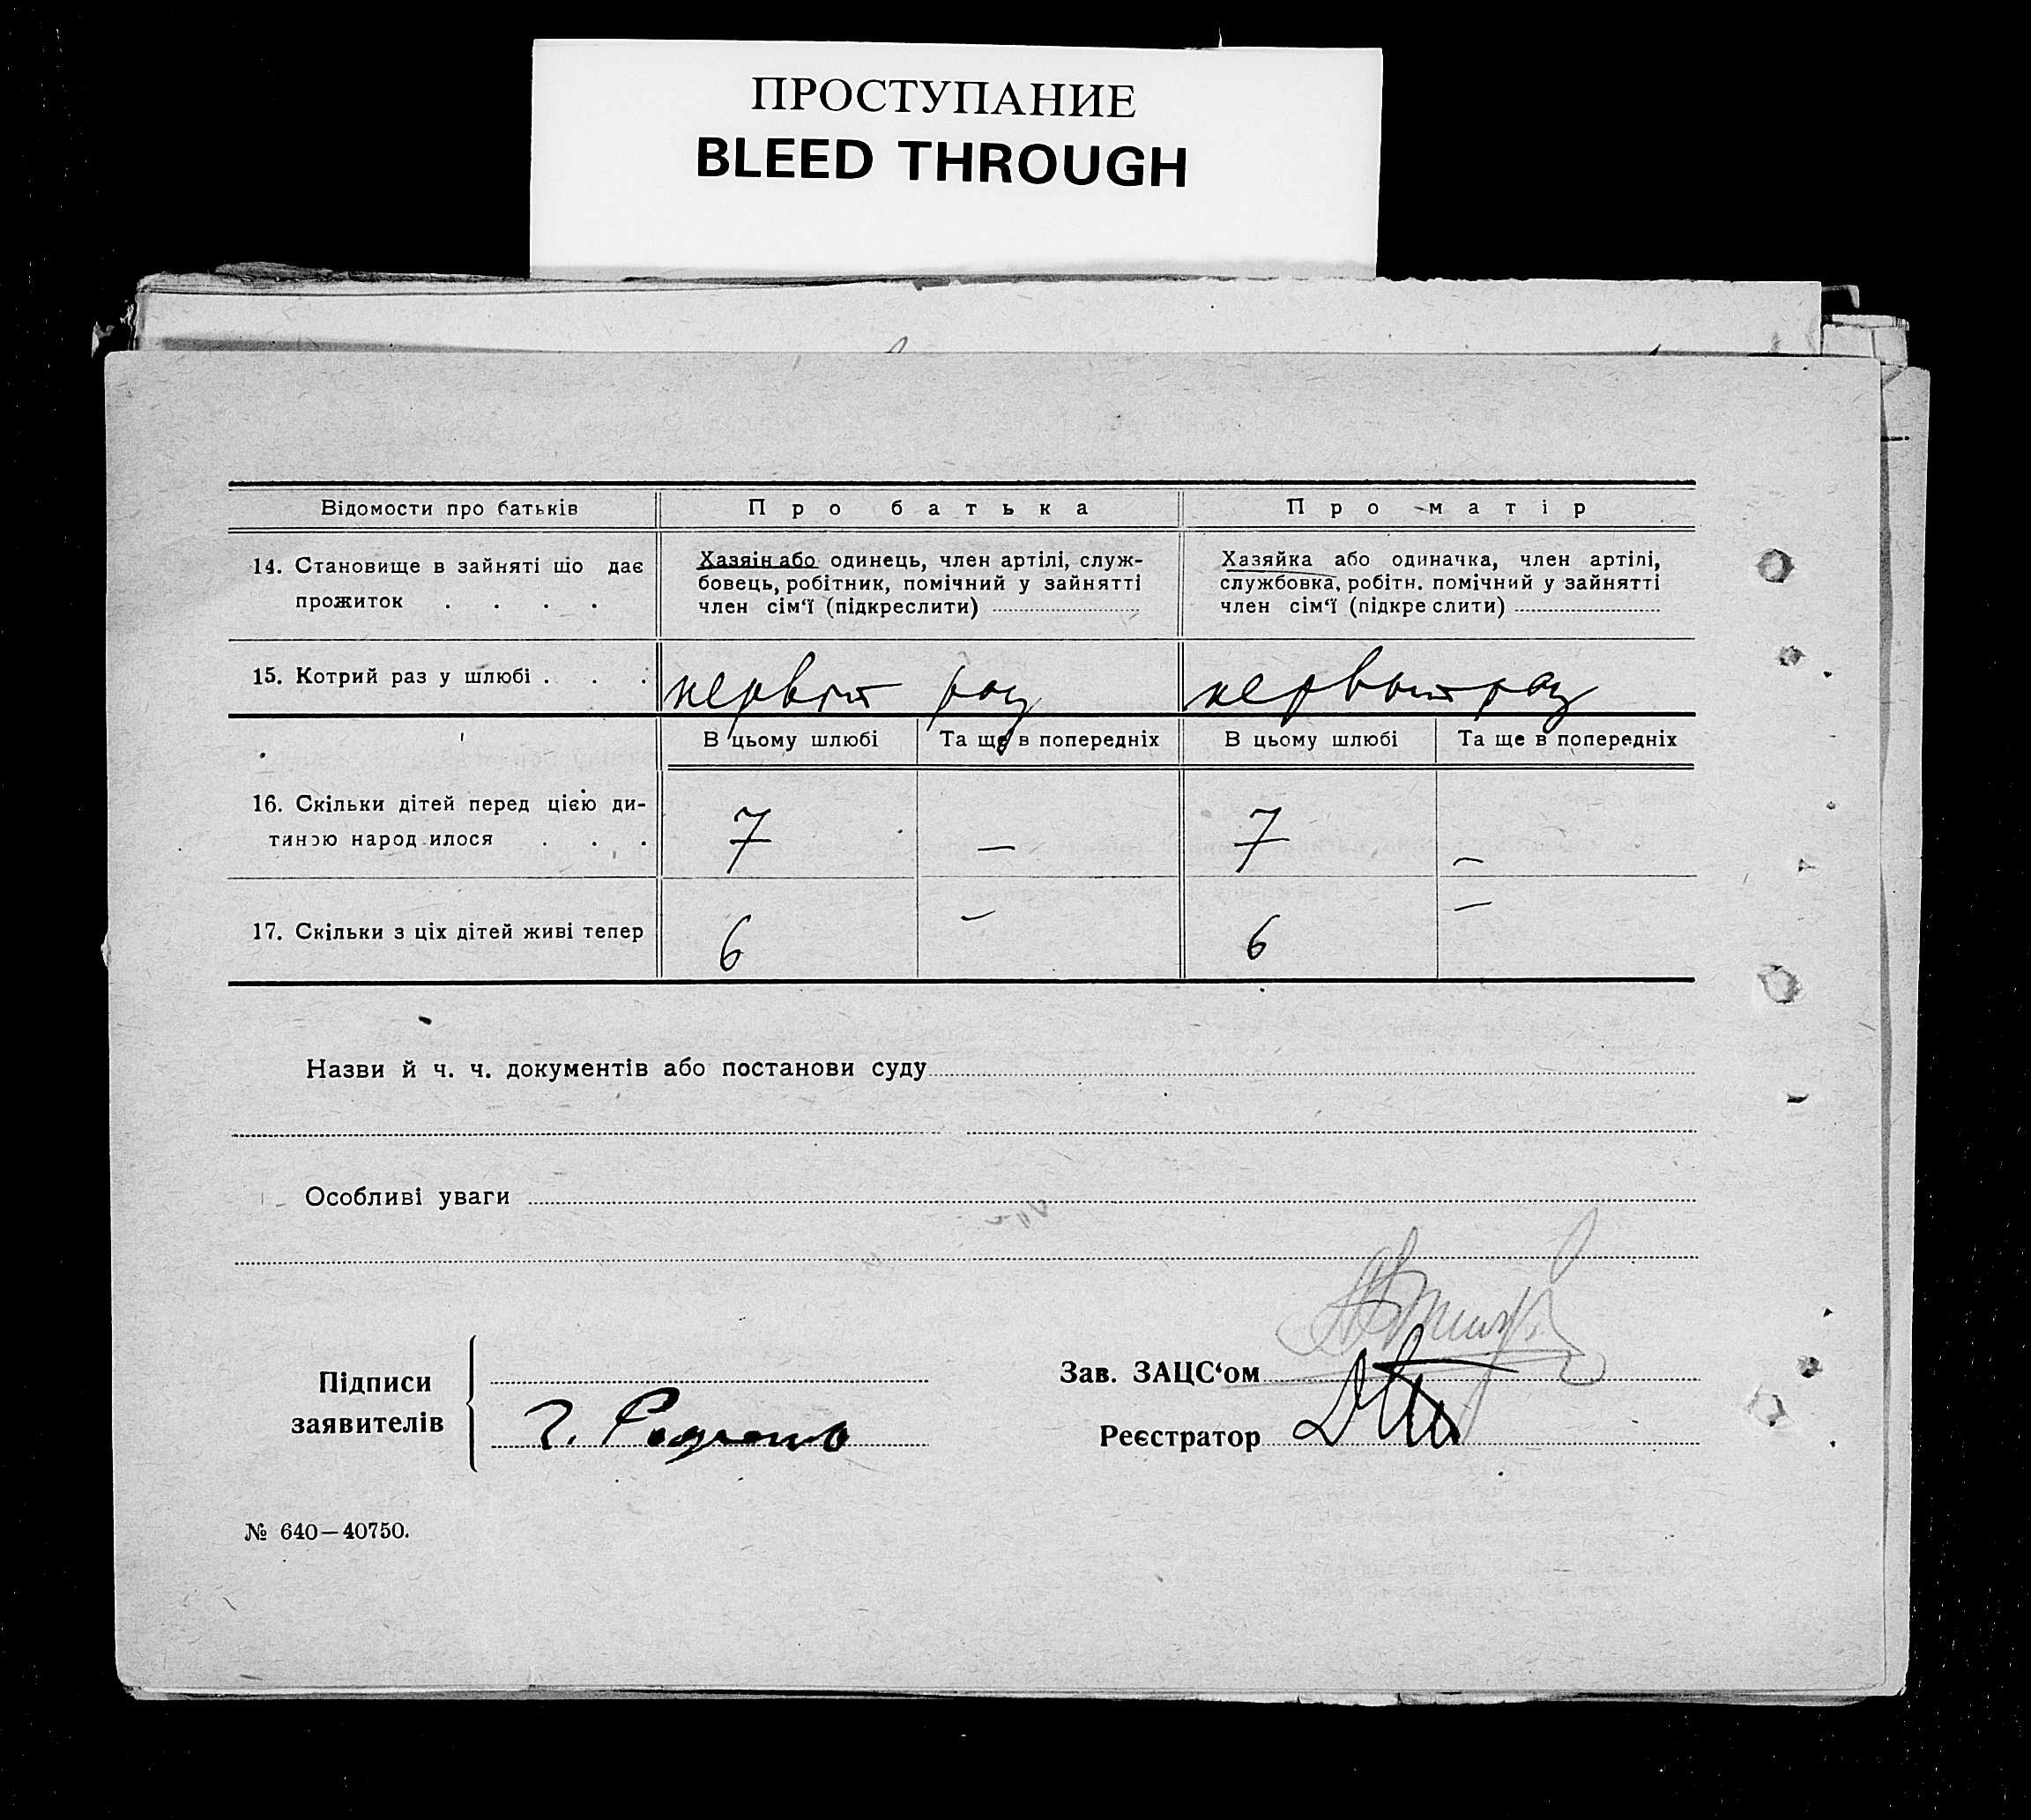 ПРОСТУПАНИЕ
BLEED THROUGH
Відомости про батьків
Про батька
Про матір
14. Становище в зайняті що дає
прожиток . . . .
Хазяін або одинець, член артілі, служ-
бовець, робітник, помічний у зайнятті
член сім‘ї (підкреслити)
Хазяйка або одиначка, член артілі,
службовка, робітн. помічний у зайнятті
член сім‘ї (підкре слити)
15. Котрий раз у шлюбі . . .
первый раз
первый раз
В цьому шлюбі
Та ще в попередніх
В цьому шлюбі
Та ще в попередніх
16. Скільки дітей перед цією ди-
тиною народилося . . .
7
—
7
—
17. Скільки з ціх дітей живі тепер
6
—
6
—
Назви й ч. ч. документів або постанови суду
Особливі уваги
Підписи
заявителів
Зав. ЗАЦС‘ом
Реєстратор
№ 640—40750.